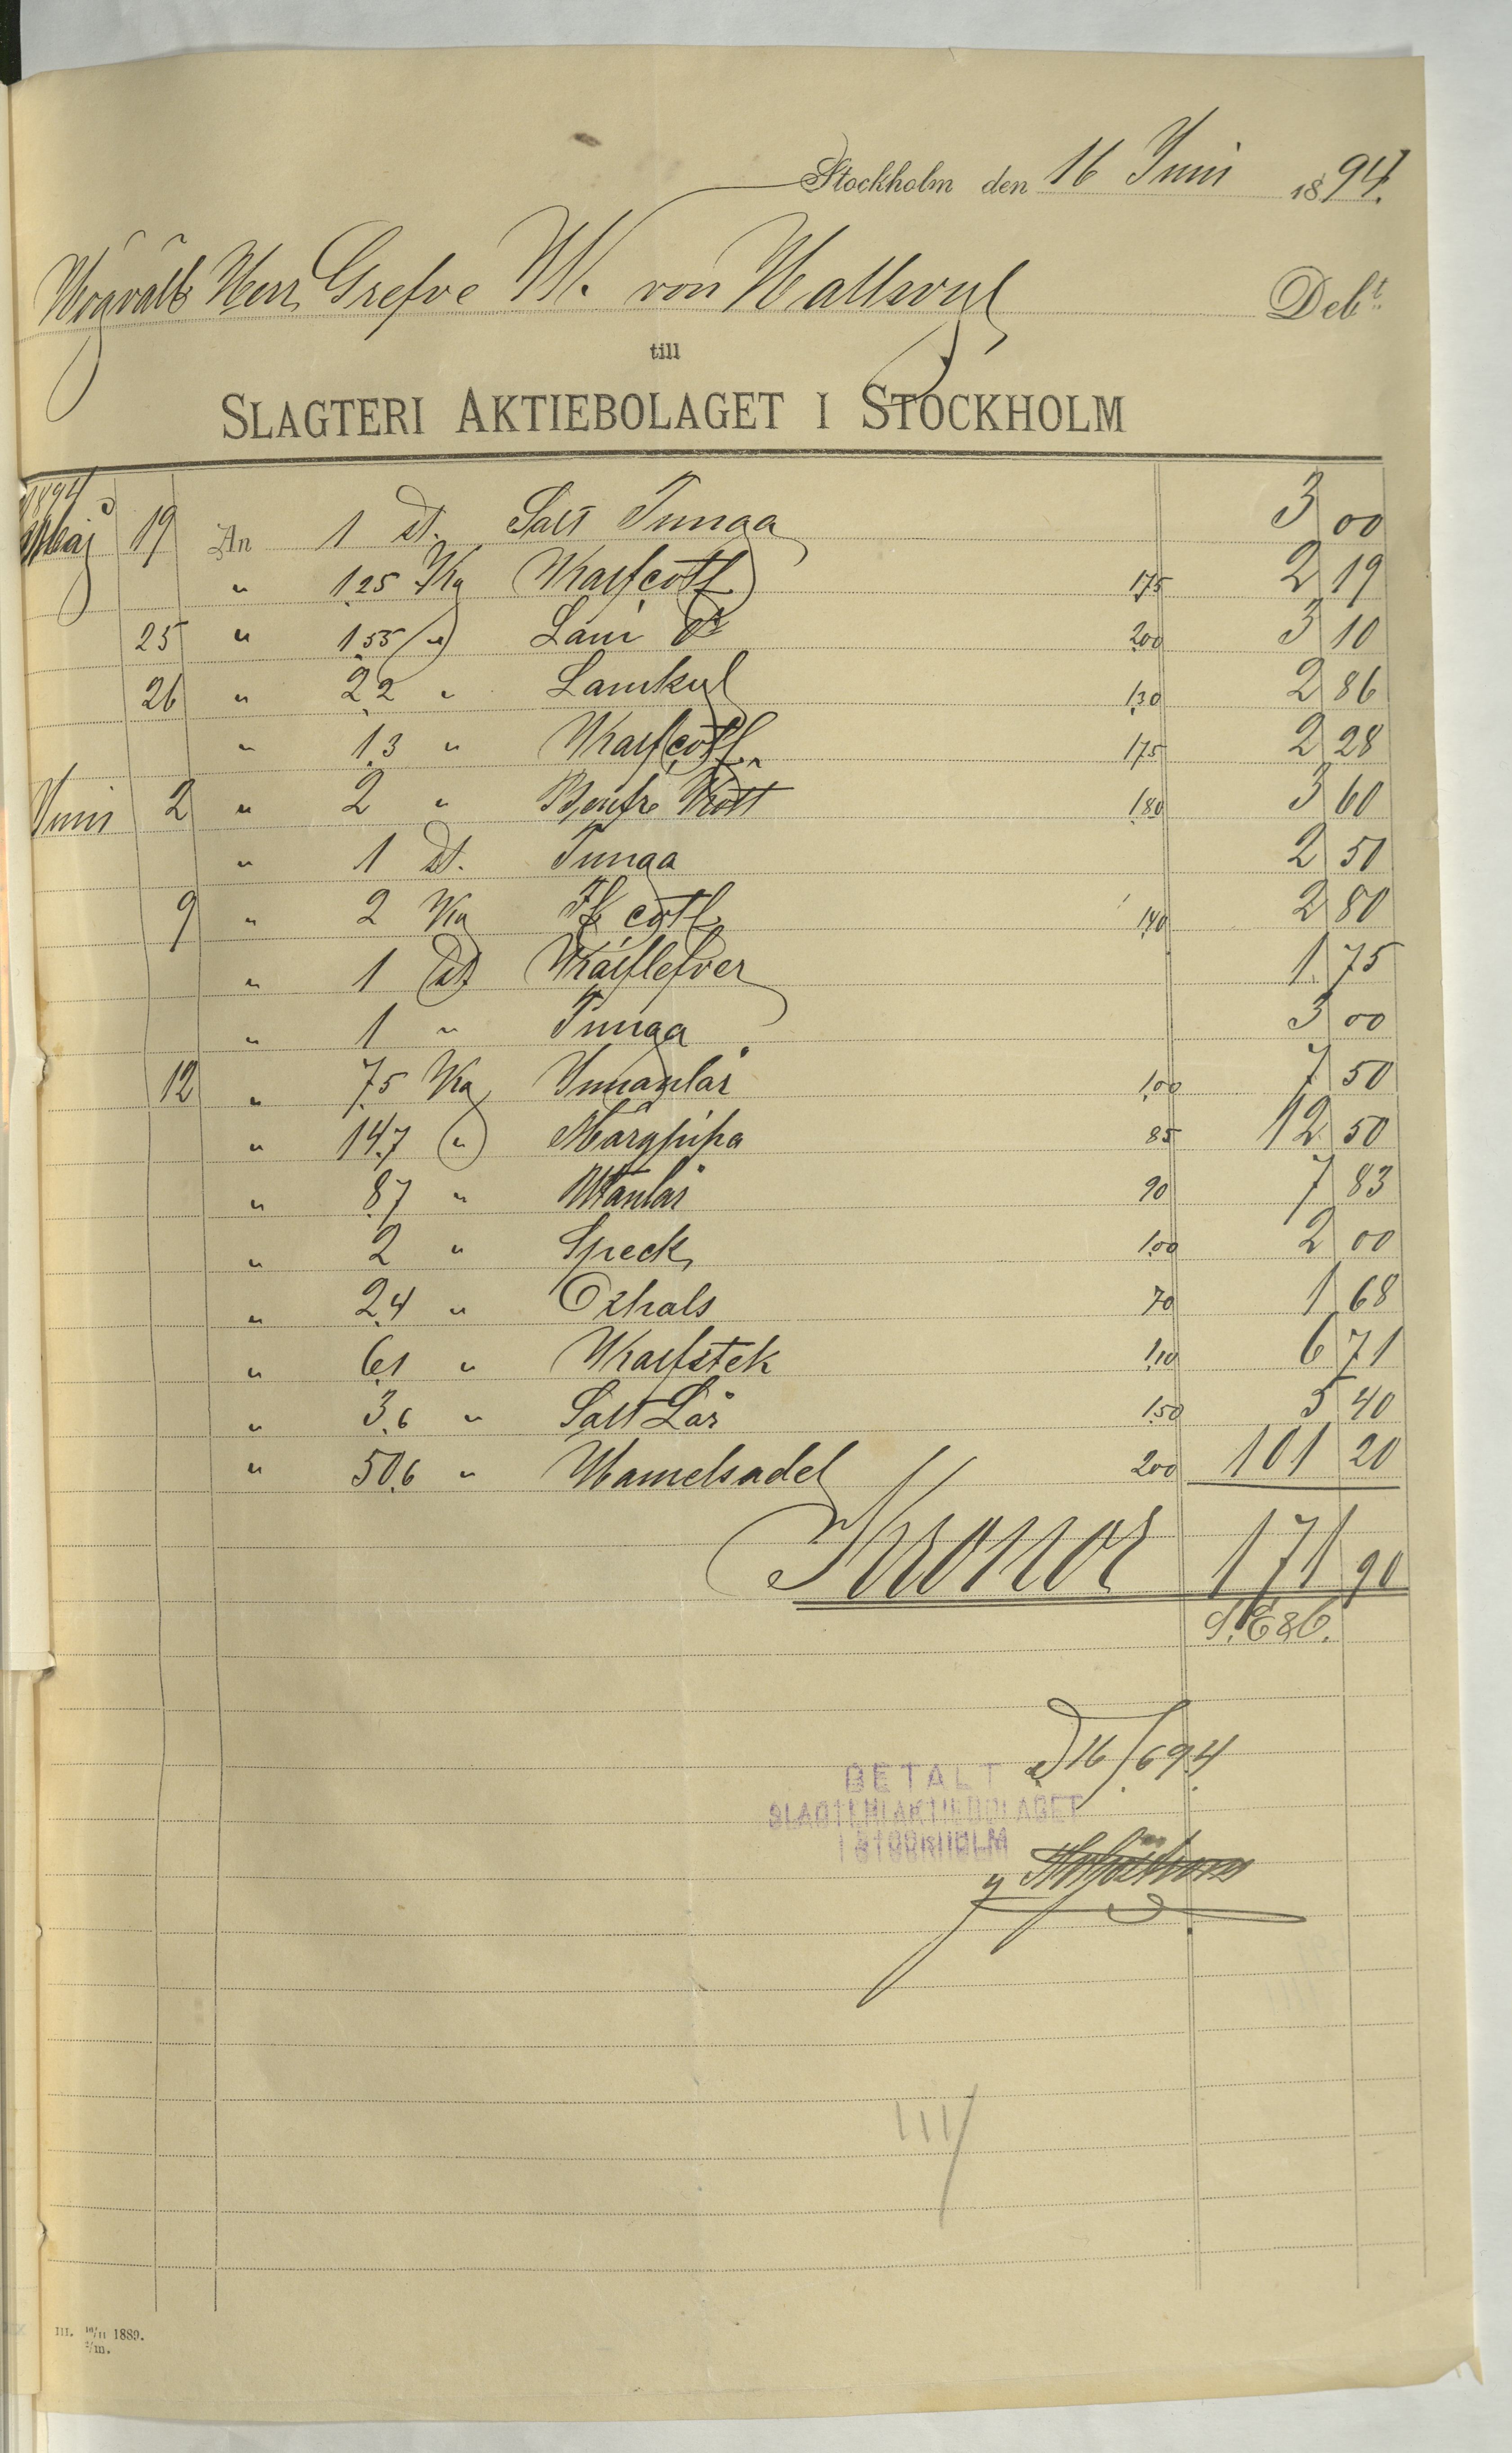 Stockholm den 16 Juni 1894.
Högvälb Herr Grefve W. von Hallwyl Debt.
till
SLAGTERI AKTIEBOLAGET I STOCKHOLM
1894
Maj 19 An 1 st. Salt Tunga 3 00
" 1.25 Kg Kalfcotl 1.75 2 19
25 " 1.55 " Lam do 2.00 3 10
26 " 2.2 " Lamkyl 1.30 2 86
" 1.3 " Kalfcotl. 1.75 2 28
Juni 2 " 2 " Benfr Kött 1.80 3 60
" 1 st. Tunga 2 50
9 " 2 Kg Fl. cotl. 1.40 2 80
" 1 st Kalflefver 1 75
" 1 " Tunga 3 00
12 " 7.5 Kg Innanlår 1.00 7 50
" 14.7 " Märgpipa 85 12 50
" 8.7 " Utanlår 90 7 83
" 2 " Speck 1.00 2 00
" 2.4 " Oxhals 70 1 68
" 6.1 " Kalfstek 1.10 6 71
" 3.6 " Salt Lår 1.50 5 40
" 50.6 " Hamelsadel 2.00 101 20
Kronor 171 90
S. E & O.
d 16/6 94
BETALT
SLAGTERI AKTIEBOLAGET
I STOCKHOLM
III. 10/11 1889.
2/m.